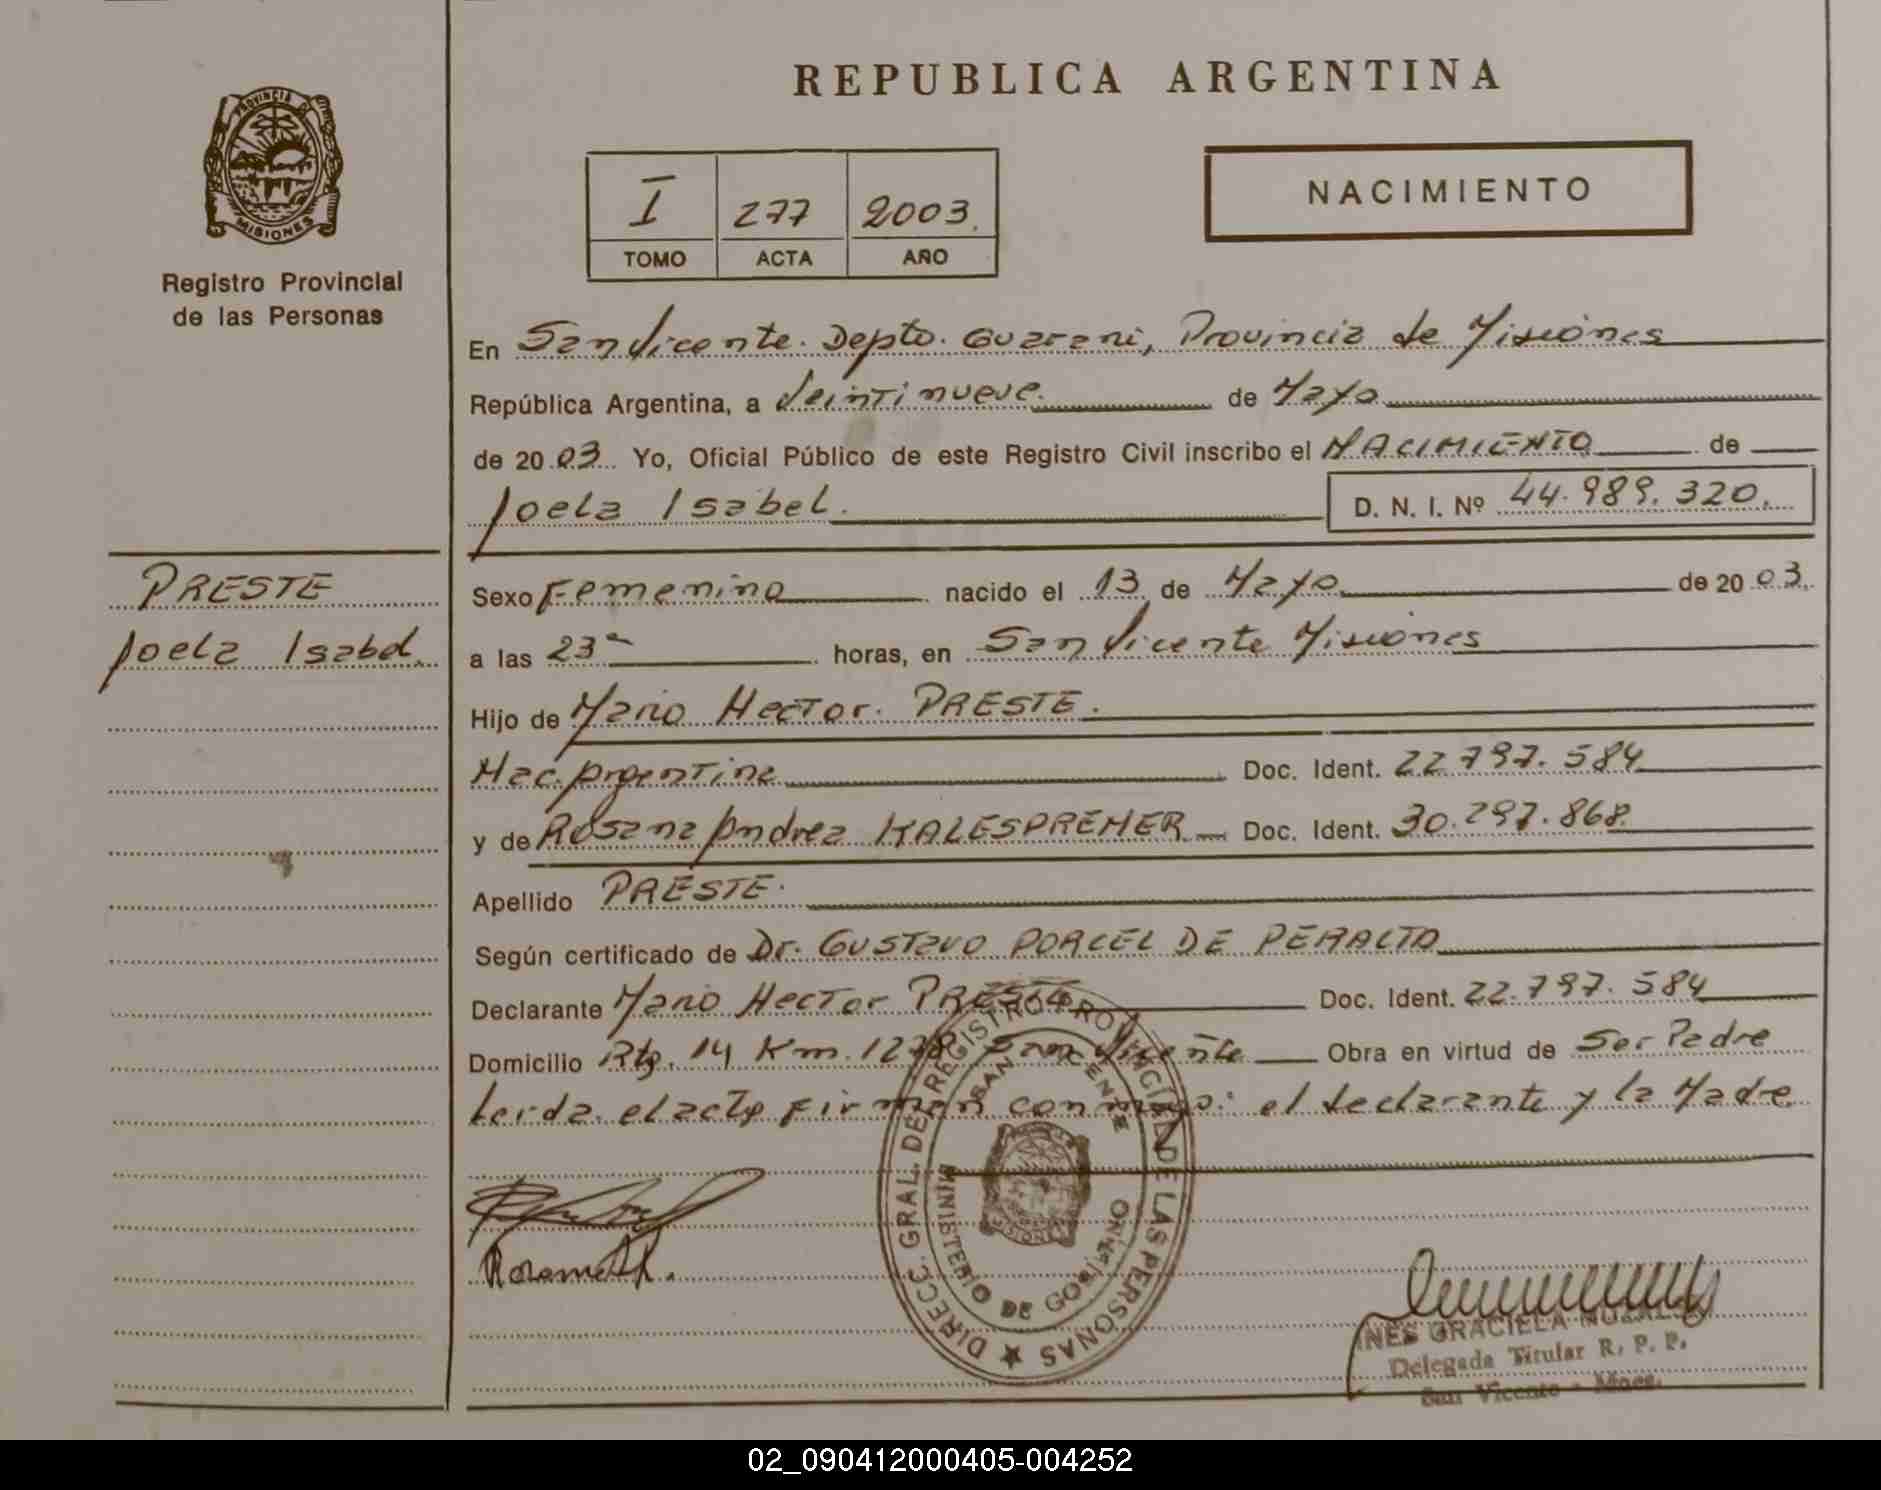 REPUBLICA ARGENTINA
PROVINCIA DE
MISIONES
Registro Provincial
de las Personas
I 277 2003.
TOMO ACTA AÑO
NACIMIENTO
En San Vicente. Depto. Guarani, Provincia de Misiones
República Argentina, a Veintinueve. de Mayo
de 20 03 Yo, Oficial Público de este Registro Civil inscribo el NACIMIENTO de
Joela Isabel. D. N. I. Nº 44.989.320.
PRESTE
Joela Isabel.
Sexo Femenino nacido el 13 de Mayo de 20 03.
a las 23 horas, en San Vicente Misiones
Hijo de Mario Hector. PRESTE.
Nac. Argentina Doc. Ident. 22.797.584
y de Rosana Andrea KALESPREMER Doc. Ident. 30.297.868.
Apellido PRESTE.
Según certificado de Dr. GUSTAVO PORCEL DE PERALTA
Declarante Mario Hector PRESTE Doc. Ident. 22.797.584
Domicilio Rta. 14 Km. San Vicente Obra en virtud de Ser Padre
Leida el acta firman conmigo: el declarante y la Madre
DIRECC. GRAL. DE REGISTRO PROVINCIAL DE LAS PERSONAS
SAN VICENTE
MINISTERIO DE GOBIERNO
MISIONES
INES GRACIELA
Delegada Titular R. P. P.
San Vicente - Mnes.
02_090412000405-004252